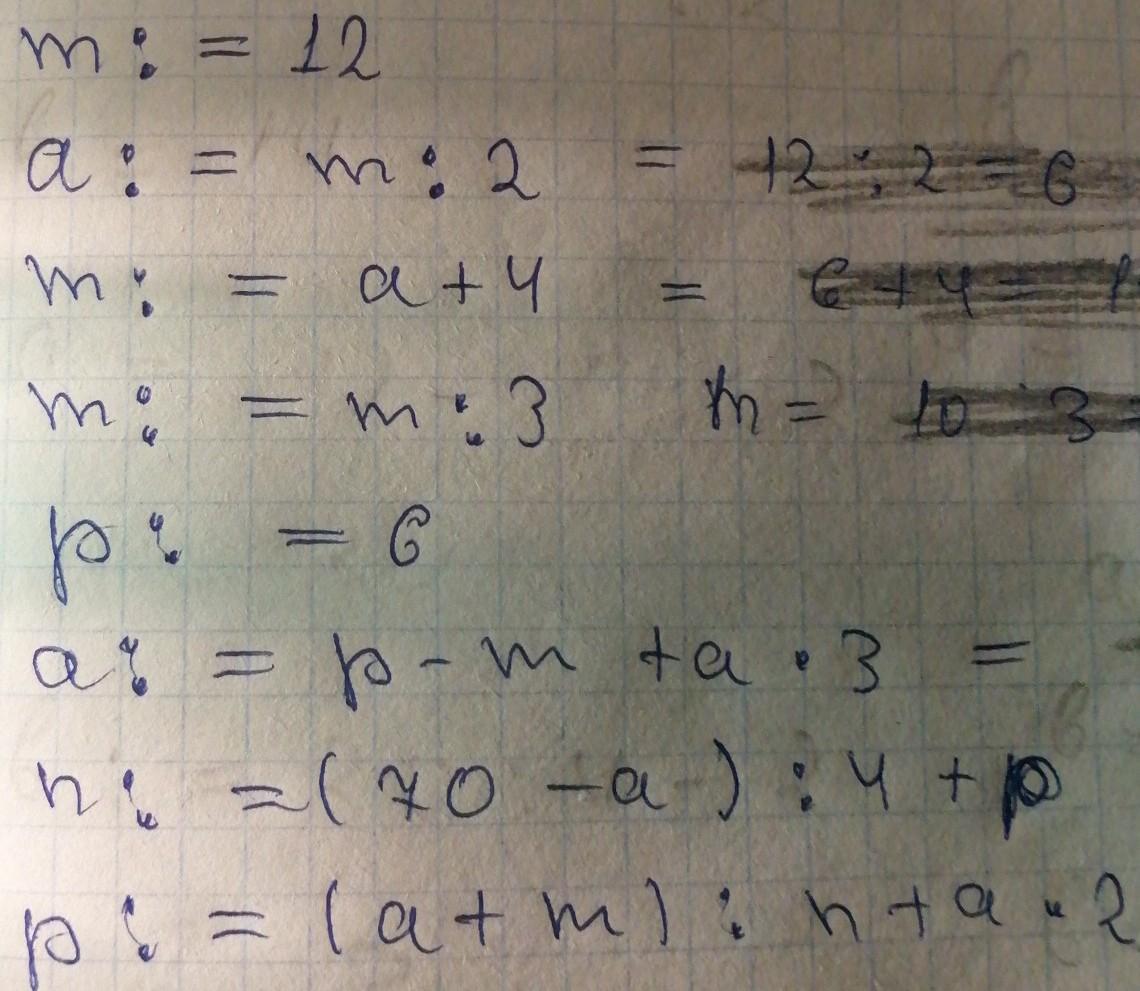 m := 12
a := m : 2 = 12 : 2 = 6
m : = a + 4 = 6 + 4 =
m : = m : 3 m = 10 : 3 =
p : = 6
a : = p - m + a · 3 =
n : = ( 70 - a ) : 4 + p
p : = ( a + m ) : n + a · 2